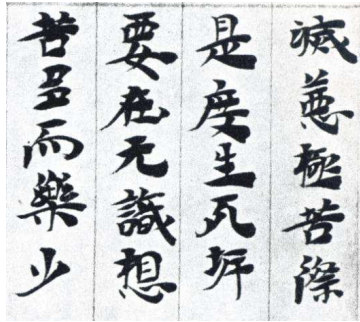 滅惡極苦際
是度生死坪
要在无識想
苦多而樂少